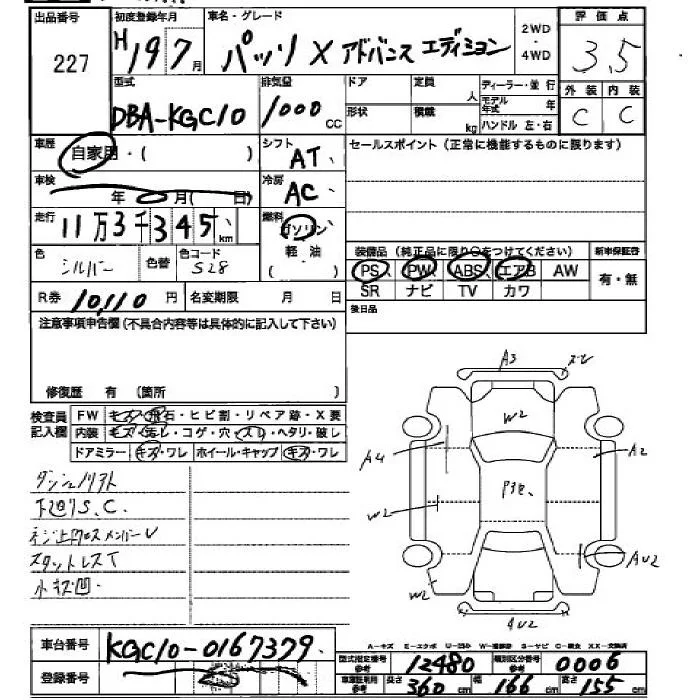 出品番号
227
初度登録年月
H 19 7月
車名・グレード
パッソ X アドバンス エディション
2WD・4WD
評価点
3.5
外装 内装
C C
型式
DBA-KGC10
排気量
1000 cc
ドア
形状
定員 人
積載 kg
ディーラー・並行
モデル年式 年
ハンドル 左・右
車歴
自家用・( )
シフト
AT
セールスポイント(正常に機能するものに限ります)
車検
年 月( 日)
冷房
AC
走行
11万3千345 km
燃料
ガソリン
軽・油
色
シルバー
色替
色コード
S28
装備品(純正品に限り○をつけてください)
新車保証書
PS PW ABS エアB AW
SR ナビ TV カワ
有・無
R券 10,110 円
名変期限 月 日
後日品
注意事項申告欄(不具合内容等は具体的に記入して下さい)
修復歴 有 (箇所 )
検査員記入欄
FW キズ・飛石・ヒビ割・リペア跡・X要
内装 キズ・汚レ・コゲ・穴・スレ・ヘタリ・破レ
ドアミラー キズ・ワレ ホイール・キャップ キズ・ワレ
下廻りS、C
スタットレスT
小キズ凹
A3
W2
A4
A2
W2
AU2
W2
AU2
車台番号
KGC10-0167379
登録番号
A-キズ E-エクボ U-凹み W-補修跡 S-サビ C-腐食 XX-交換済
型式指定番号 参考 12480
類別区分番号 参考 0006
車庫証明用 参考 長さ 360 cm 幅 166 cm 高さ 155 cm